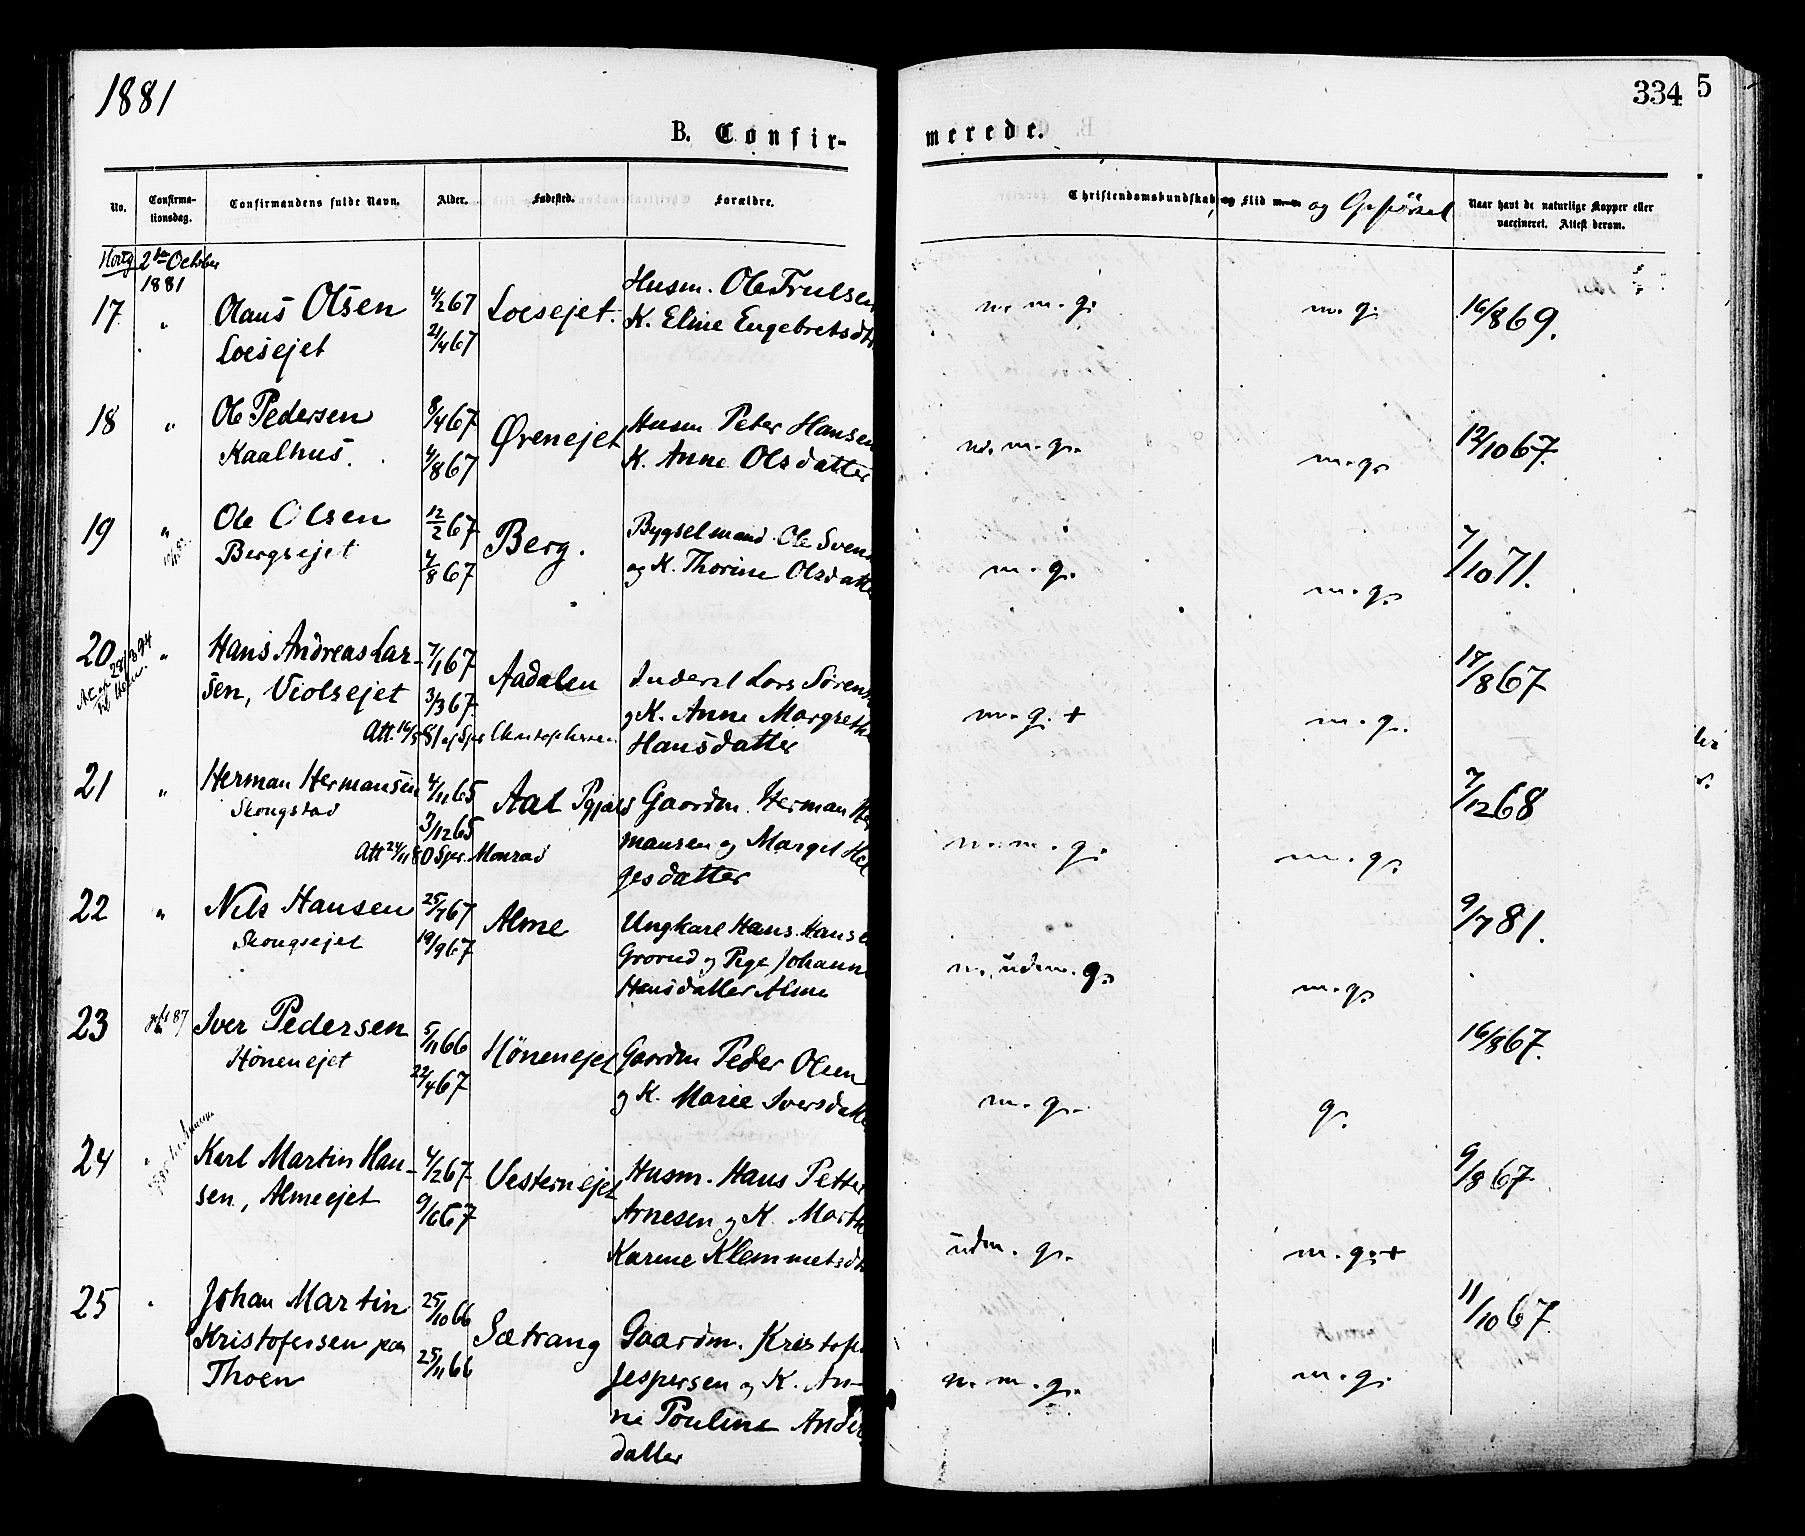 1881
334
5
B. Confir-
merede.
No.
Confirma-
tionsdag.
Confirmandens fulde Navn.
Alder.
Fødested.
Forældre.
Christendomskundskab og Flid
og Opførsel
Naar havt de naturlige Kopper eller
vaccineret. Attest derom.
2den October
1881
17 " Olaus Olsen 4/2 67 Loesejet. Husm. Ole Trulsen n. m. g. m. g. 16/8 69.
Loesejet 21/4 67 K. Eline Engebretsdtr
18 " Ole Pedersen 8/4 67 Ørenejet Husm Peter Hansen m. g. m. g. 12/10 67.
Kaalhus. 4/8 67 K. Anne Olsdatter
19 " Ole Olsen 12/2 67 Berg. Bygselmand Ole Svens m. g. m. g. 7/10 71.
Bergsejet 4/8 67 og K. Thorine Olsdatte
20 " Hans Andreas Lar- 7/1 67 Aadalen Inderst Lars Sørens m. g. + m. g. 17/8 67
sen, Violsejet 3/3 67. g K. Anne Margrethe
Att. 16/5 81 af Spr Christophersen Hansdatter
21 " Herman Hermansen 4/11 65 Aal Pgjæld Gaardm. Herman Her n. m. g. m. g. 7/12 68
Skongstad 3/12 65 mansen og Margit Hel
Att 24/11 80 Spr. Monrad gesdatter
22 " Nils Hansen 25/7 67 Alme Ungkarl Hans Hanse n. udm. g. m. g. 9/7 81.
Skongsejet 19/9 67 Grorud og Pige Johann
Hansdatter Alme
23 87 Iver Pedersen 5/11 66 Hønenejet Gaardm Peder Olsen m. g. g. 16/8 67.
Hønenejet 22/4 67 g K. Marie Iversdatte
24 " Karl Martin Han- 4/2 67 Vesternejet Husm. Hans Petter udm. g. m. g. + 9/8 67.
sen, Almeejet 9/6 67 Arnesen g K. Marth
Karine Klemmetsdt
25 " Johan Martin 25/10 66 Sætrang Gaardm. Kristofe n. m. g. m. g. 11/10 67.
Kristofersen paa 25/11 66 Jespersen og K. An-
Thoen ne Pouline Anders
datter